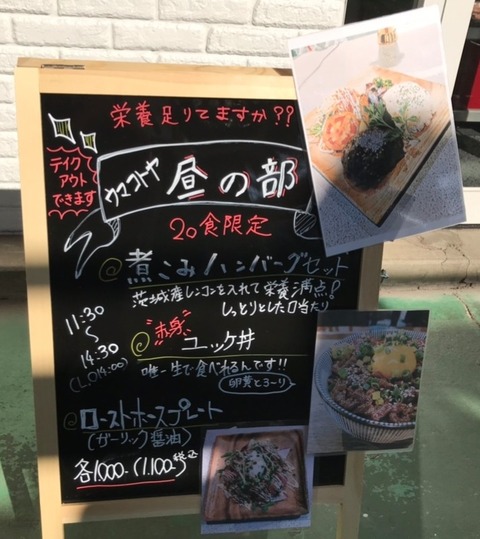 栄養足りてますか??
テイクアウトできます
ウマコトヤ 昼の部
20食限定
@煮こみハンバーグセット
茨城産レンコンを入れて栄養満点!
しっとりとした口当たり
11:30
~
14:30
(L.O14:00)
@赤身ユッケ丼
唯一生で食べれるんです!!
卵黄とろ~り
@ローストホースプレート
(ガーリック醤油)
各1000-(1.100-)税込